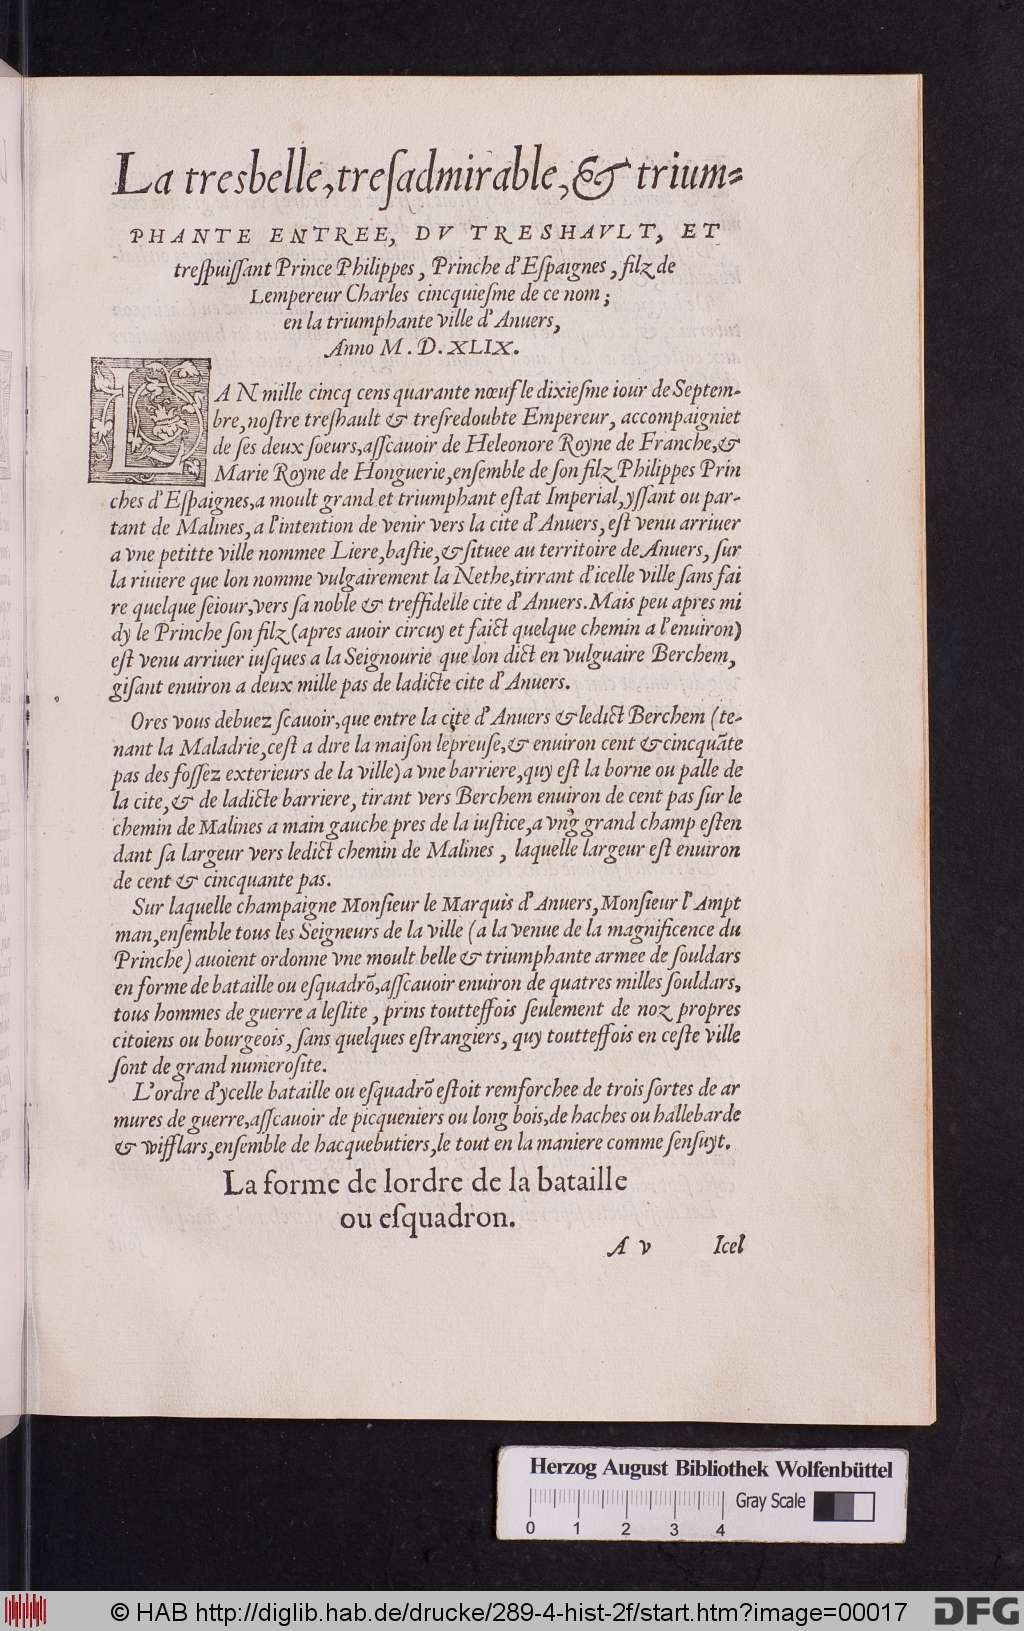 La tresbelle, treſadmirable, & trium-
PHANTE ENTREE, DV TRESHAVLT, ET
treſpuiſſant Prince Philippes, Princhе d'Eſpaignes, filz de
Lempereur Charles cincquieſme de ce nom;
en la triumphante ville d'Anuers,
Anno M. D. XLIX.
LAN mille cincq cens quarante nœuf le dixieſme iour de Septem-
bre, noſtre treſhault & treſredoubte Empereur, accompaigniet
de ſes deux ſoeurs, aſſcauoir de Heleonore Royne de Franche, &
Marie Royne de Honguerie, enſemble de ſon filz Philippes Prin
ches d'Eſpaignes, a moult grand et triumphant eſtat Imperial, yſſant ou par-
tant de Malines, a l'intention de venir vers la cite d'Anuers, eſt venu arriuer
a vne petitte ville nommee Liere, baſtie, & ſituee au territoire de Anuers, ſur
la riuiere que lon nomme vulgairement la Nethe, tirrant d'icelle ville ſans fai
re quelque ſeiour, vers ſa noble & treffidelle cite d'Anuers. Mais peu apres mi
dy le Princhе ſon filz (apres auoir circuy et faict quelque chemin a l'enuiron)
eſt venu arriuer iuſques a la Seignourie que lon dict en vulguaire Berchem,
giſant enuiron a deux mille pas de ladicte cite d'Anuers.
Ores vous debuez ſcauoir, que entre la cite d'Anuers & ledict Berchem (te-
nant la Maladrie, ceſt a dire la maiſon lepreuſe, & enuiron cent & cincquāte
pas des foſſez exterieurs de la ville) a vne barriere, quy eſt la borne ou palle de
la cite, & de ladicte barriere, tirant vers Berchem enuiron de cent pas ſur le
chemin de Malines a main gauche pres de la iuſtice, a vng grand champ eſten
dant ſa largeur vers ledict chemin de Malines, laquelle largeur eſt enuiron
de cent & cincquante pas.
Sur laquelle champaigne Monſieur le Marquis d'Anuers, Monſieur l'Ampt
man, enſemble tous les Seigneurs de la ville (a la venue de la magnificence du
Princhе) auoient ordonne vne moult belle & triumphante armee de ſouldars
en forme de bataille ou eſquadrō, aſſcauoir enuiron de quatres milles ſouldars,
tous hommes de guerre a leſlite, prins toutteffois ſeulement de noz propres
citoiens ou bourgeois, ſans quelques eſtrangiers, quy toutteffois en ceſte ville
ſont de grand numeroſite.
L'ordre d'ycelle bataille ou eſquadrō eſtoit remforchee de trois ſortes de ar
mures de guerre, aſſcauoir de picqueniers ou long bois, de haches ou hallebarde
& wifflars, enſemble de hacquebutiers, le tout en la maniere comme ſenſuyt.
La forme de lordre de la bataille
ou eſquadron.
A v Icel
Herzog August Bibliothek Wolfenbüttel
Gray Scale
0 1 2 3 4
© HAB http://diglib.hab.de/drucke/289-4-hist-2f/start.htm?image=00017
DFG